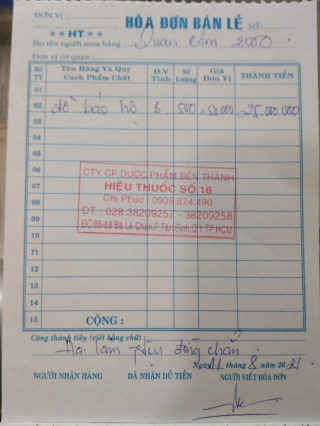 ĐƠN VỊ :
HÓA ĐƠN BÁN LẺ Số
★★HT★★
Họ tên người mua hàng : Quán cơm 2000
Đơn vị cơ quan :
Số TT Tên Hàng Và Quy Cách Phẩm Chất Đ.V Tính Số Lượng Giá Đơn Vị THÀNH TIỀN
01
02 đồ bảo hộ B 500 x 50.000 25.000.000
03
04
05
CTY CP DƯỢC PHẨM BẾN THÀNH
06
HIỆU THUỐC SỐ 16
07
Chị Phúc : 0908.874.490
08
ĐT : 028.38209257 - 38209258
09
ĐC:66-68 Bà Lê Chân,P.Tân Định,Q.1,TP.HCM
10
11
12
13
15 CỘNG :
Cộng thành tiền (viết bằng chữ)
Hai lăm triệu đồng chẵn
Ngày 21 tháng 8 năm 2021
NGƯỜI NHẬN HÀNG ĐÃ NHẬN ĐỦ TIỀN NGƯỜI VIẾT HÓA ĐƠN